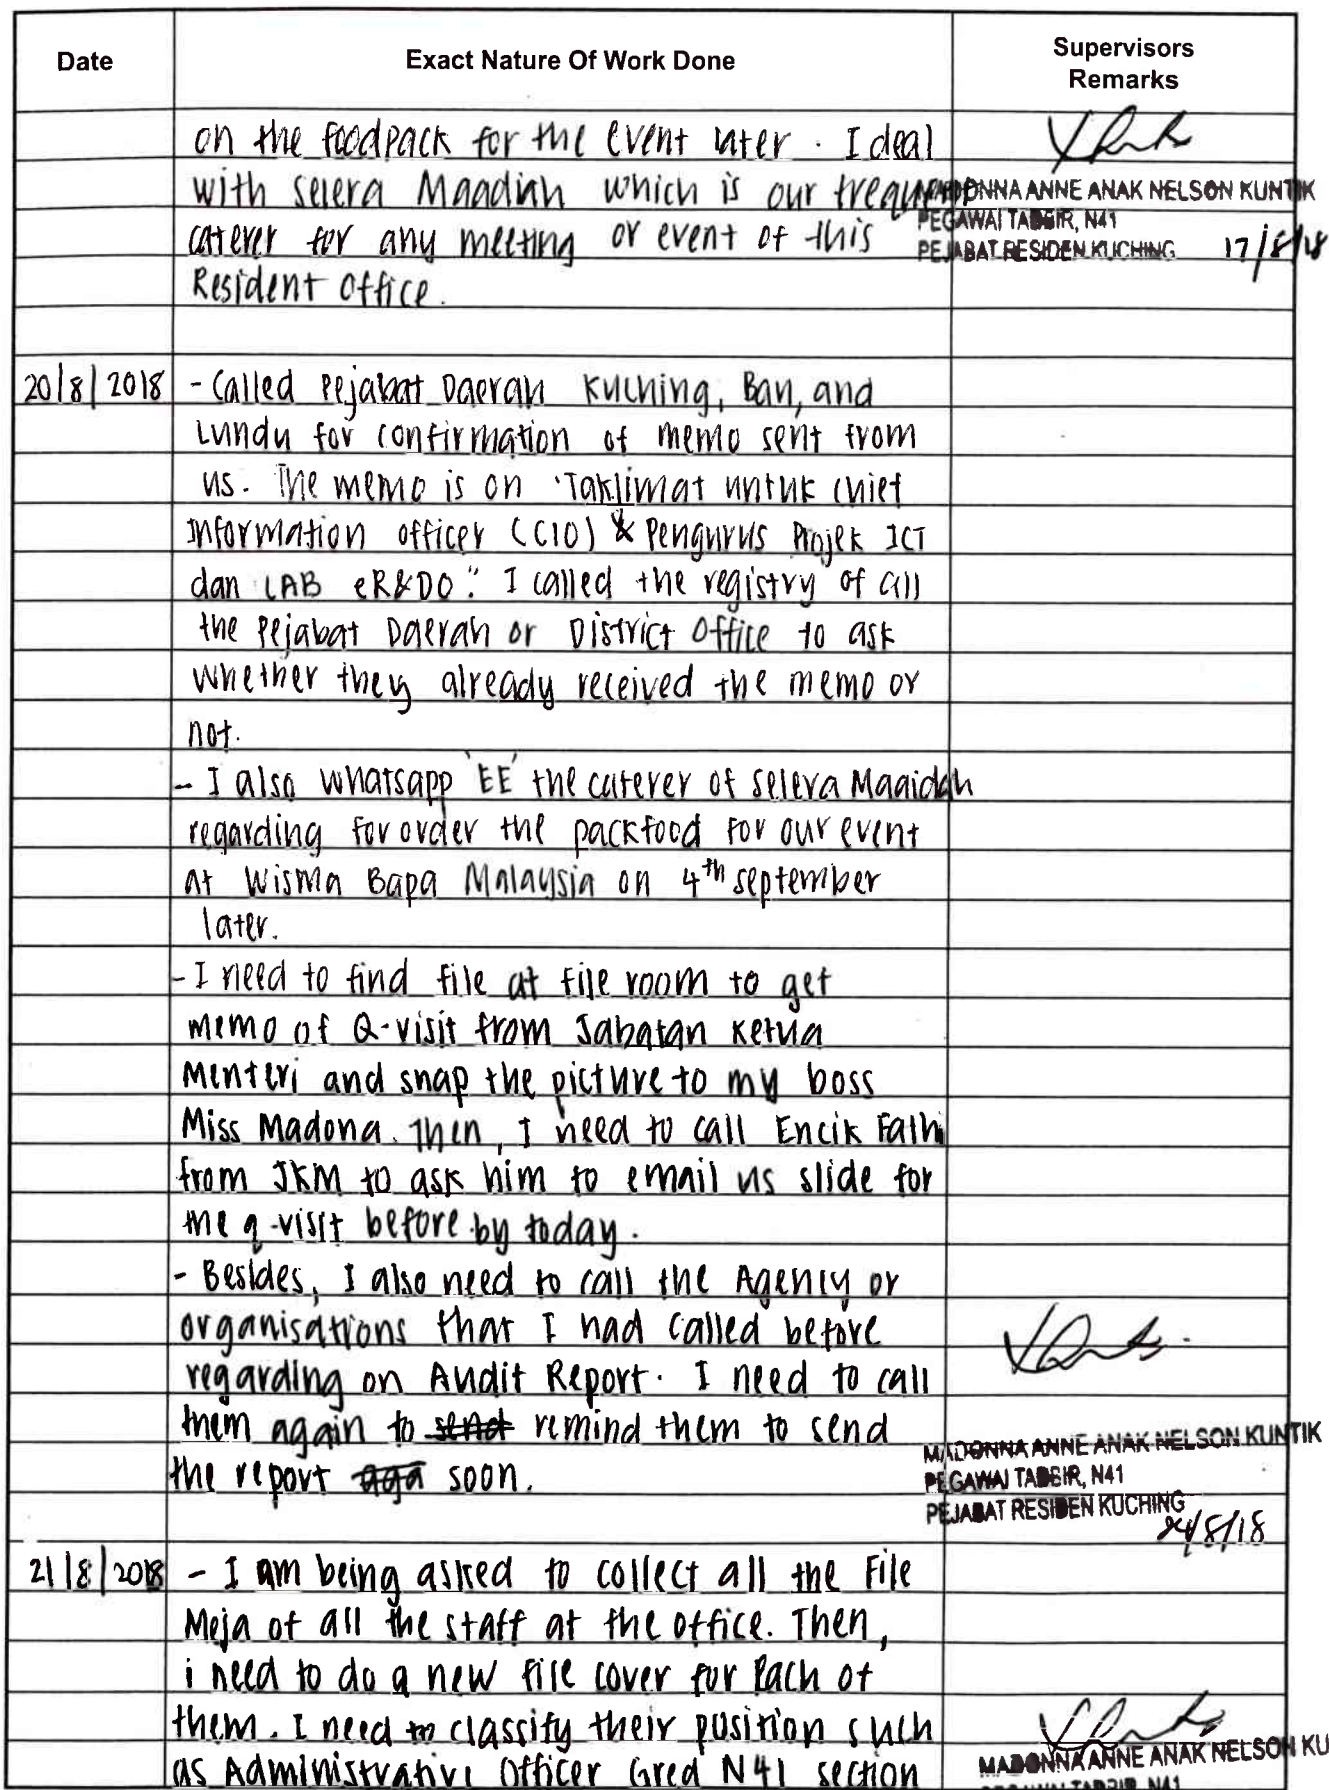 Date
Exact Nature Of Work Done
Supervisors
Remarks
on the foodpack for the event later. I deal
with selera Maadiah which is our frequent
MADONNA ANNE ANAK NELSON KUNTIK
caterer for any meeting or event of this
PEGAWAI TADBIR, N41
PEJABAT RESIDEN KUCHING 17/8/18
Resident Office.
20/8/2018 - Called Pejabat Daerah Kuching, Bau, and
Lundu for confirmation of memo sent from
us. The memo is on "Taklimat untuk Chief
Information Officer (CIO) & Pengurus Projek ICT
dan LAB eR&DO". I called the registry of all
the Pejabat Daerah or District Office to ask
whether they already received the memo or
not.
- I also whatsapp 'EE' the caterer of selera Maaidah
regarding for order the packfood for our event
at Wisma Bapa Malaysia on 4th september
later.
- I need to find file at file room to get
memo of Q-visit from Jabatan Ketua
Menteri and snap the picture to my boss
Miss Madona. Then, I need to call Encik Falhi
from JKM to ask him to email us slide for
the q-visit before by today.
- Besides, I also need to call the Agency or
organisations that I had called before
regarding on Audit Report. I need to call
them again to send remind them to send
the report aga soon.
MADONNA ANNE ANAK NELSON KUNTIK
PEGAWAI TADBIR, N41
PEJABAT RESIDEN KUCHING
/8/18
21/8/2018 - I am being asked to collect all the File
Meja of all the staff at the office. Then,
i need to do a new file cover for each of
them. I need to classify their position such
as Administrative Officer Gred N41 section
MADONNA ANNE ANAK NELSON KU
PEGAWAI TADBIR, N41